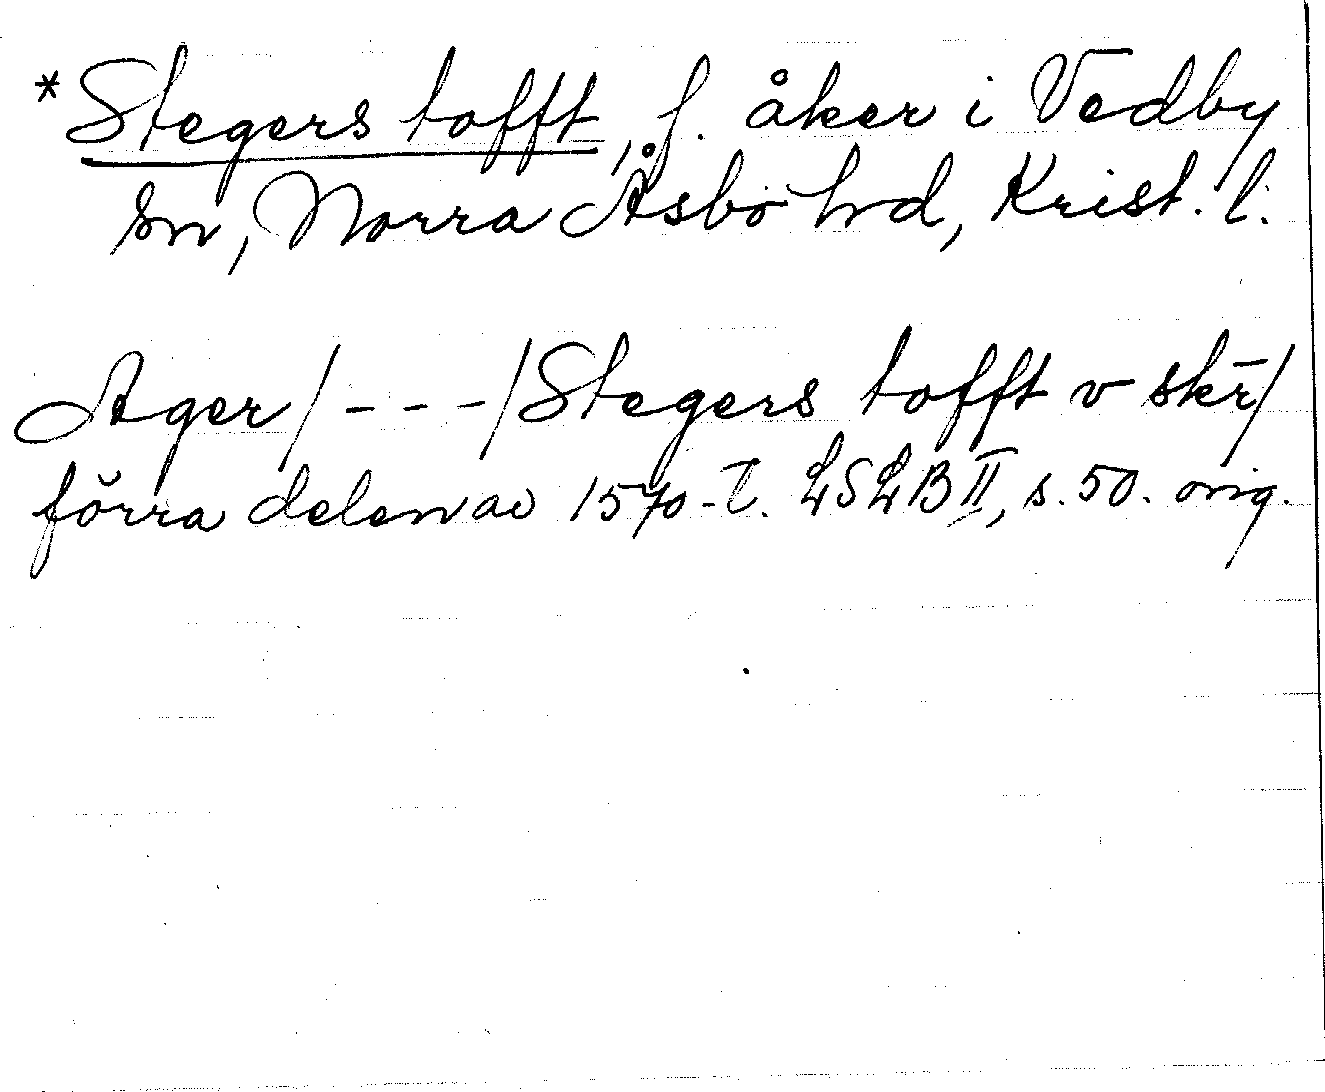 *Stegers tofft, f. åker i Vedby
sn, Norra Åsbo hd, Krist. l.
Ager/---/Stegers tofft v skr̄/
förra delen av 1570-t. LSLB II, s. 50. orig.